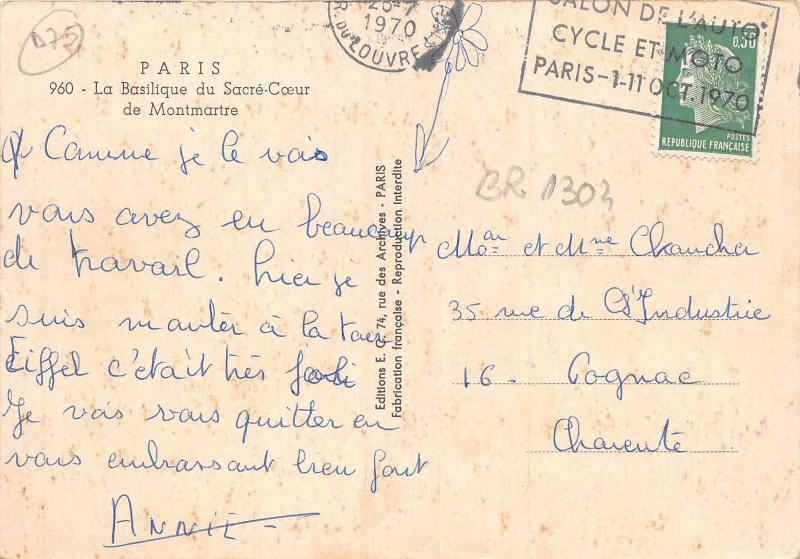 D75
25-7
1970
R. DU LOUVRE
SALON DE L'AUTO
CYCLE ET MOTO
PARIS-1-11 OCT. 1970
0,30
POSTES
REPUBLIQUE FRANÇAISE
PARIS
960 - La Basilique du Sacré-Cœur
de Montmartre
BR 1303
Comme je le vois
vous avez eu beaucoup
de travail. hier je
suis montér à la tour
Eiffel c'était très joli
Je vais vous quitter en
vous embrassant bien fort
ANNIE
Editions E. R. 74, rue des Archives - PARIS
Fabrication française - Reproduction Interdite
et Mme
35 rue de l'Industrie
16 - Cognac
Charente